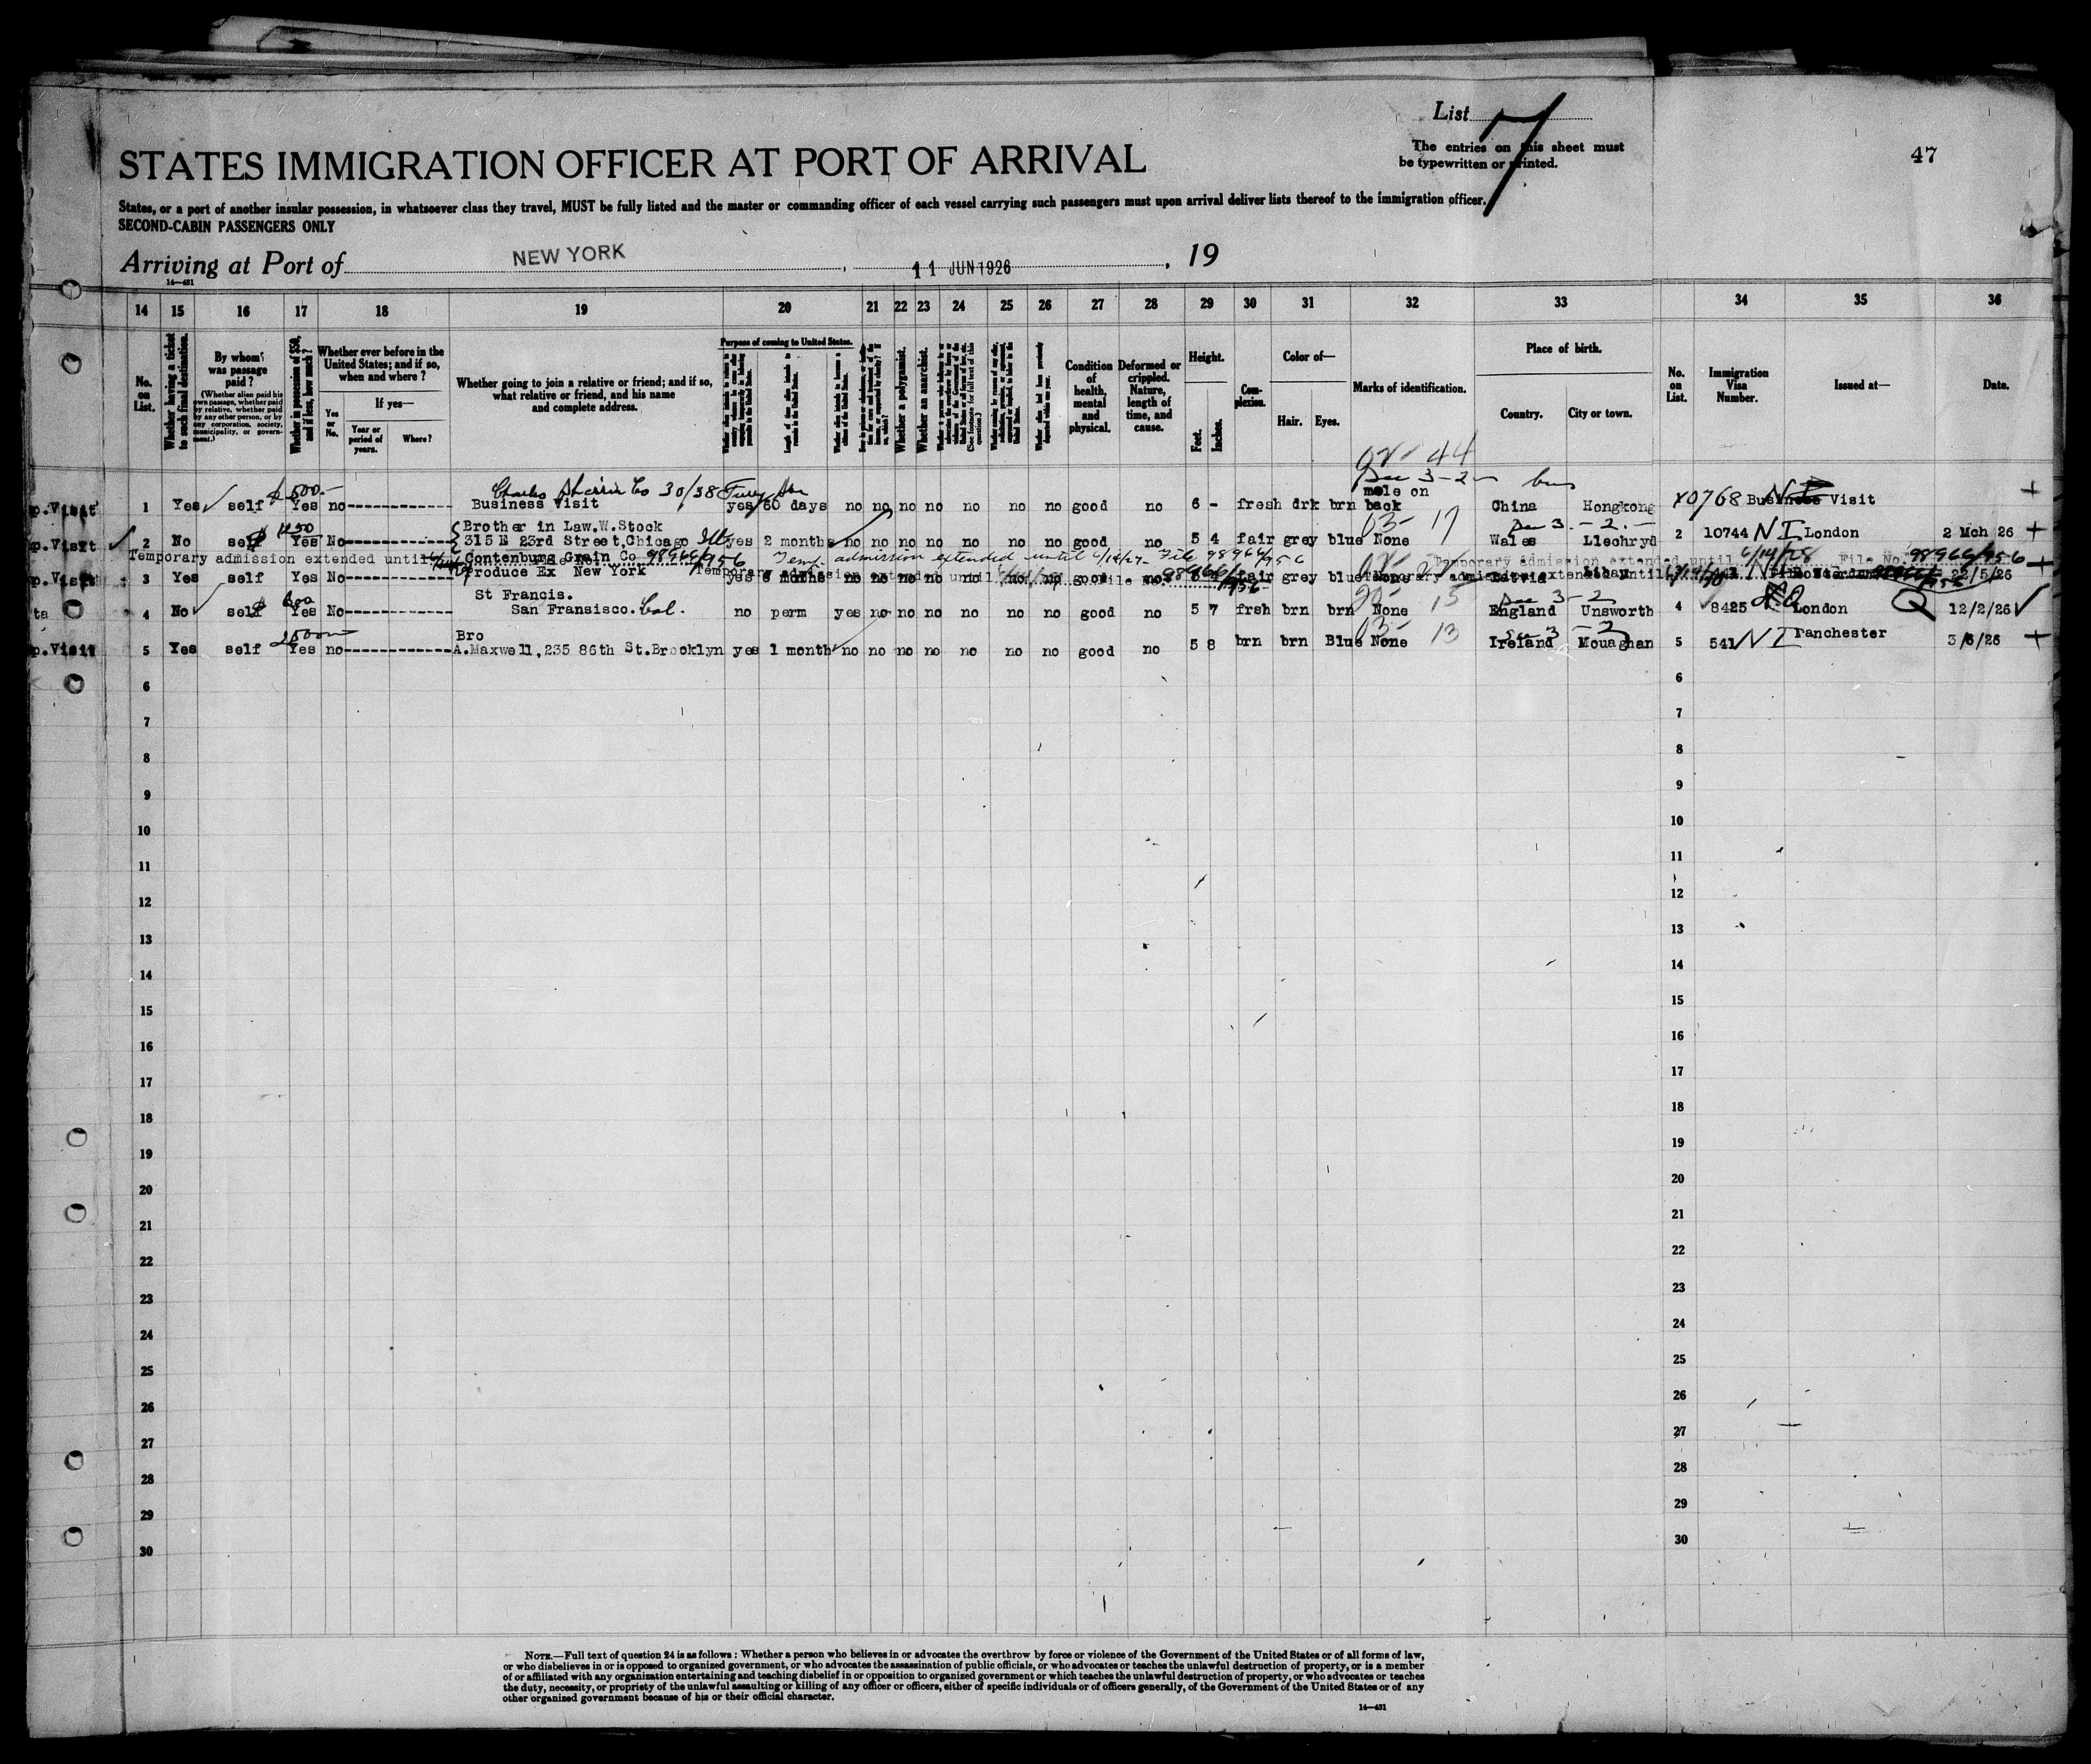 List 7
The entries on this sheet must
be typewritten or printed.
47
STATES IMMIGRATION OFFICER AT PORT OF ARRIVAL
States, or a port of another insular possession, in whatsoever class they travel, MUST be fully listed and the master or commanding officer of each vessel carrying such passengers must upon arrival deliver lists thereof to the immigration officer.
SECOND-CABIN PASSENGERS ONLY
Arriving at Port of NEW YORK, 11 JUN 1926, 19
14—431
14 15 16 17 18 19 20 21 22 23 24 25 26 27 28 29 30 31 32 33 34 35 36
No. on List.
Whether having a ticket to such final destination.
By whom was passage paid?
(Whether alien paid his own passage, whether paid by relative, whether paid by any other person, or by any corporation, society, municipality, or government.)
Whether in possession of $50, and if less, how much?
Whether ever before in the United States; and if so, when and where?
Yes or No.
If yes—
Year or period of years.
Where?
Whether going to join a relative or friend; and if so, what relative or friend, and his name and complete address.
Purpose of coming to United States.
Length of time alien intends to remain in the United States.
Whether a polygamist.
Whether an anarchist.
Condition of health, mental and physical.
Deformed or crippled. Nature, length of time, and cause.
Height.
Feet. Inches.
Complexion.
Color of—
Hair. Eyes.
Marks of identification.
Place of birth.
Country. City or town.
No. on List.
Immigration Visa Number.
Issued at—
Date.
44
Dec 3-2
Charles Co 30/38
p.Visit 1 Yes self $500.- Yes no Business Visit yes 60 days no no no no no no no good no 6 - fresh drk brn mole on back China Hongkong 10768 Business Visit +
13- 17
Dec 3 - 2 -
Brother in Law.W.Stock
p.Visit 2 No self $ 1250 Yes No 315 E 23rd Street,Chicago Ill yes 2 months no no no no no no no good no 5 4 fair grey blue None Wales Llechryd 2 10744 N I London 2 Mch 26 +
Temporary admission extended until Contenburg Grain Co 98966/956 Temp. admission extended until 6/14/27 File 98966/956 Temporary admission extended until 6/14/28 File No. 98966/956
p.Visit 3 Yes self Yes No Produce Ex New York yes 6 months no no no no no no no good no fair grey blue None 22/5/26 +
St Francis.
15 Dec 3 - 2
ta 4 No self $ 800 Yes No San Fransisco. Cal. no perm yes no no no no no no good no 5 7 frsh brn brn None England Unsworth 4 8425 London Q 12/2/26
13- 13 3 - 2
Bro
p.Visit 5 Yes self Yes no A.Maxwell,235 86th St.Brooklyn yes 1 month no no no no no no no good no 5 8 brn brn Blue None Ireland Mouaghan 5 541 N I Panchester 3/6/26 +
6 6
7 7
8 8
9 9
10 10
11 11
12 12
13 13
14 14
15 15
16 16
17 17
18 18
19 19
20 20
21 21
22 22
23 23
24 24
25 25
26 26
27 27
28 28
29 29
30 30
NOTE.—Full text of question 24 is as follows: Whether a person who believes in or advocates the overthrow by force or violence of the Government of the United States or of all forms of law,
or who disbelieves in or is opposed to organized government, or who advocates the assassination of public officials, or who advocates or teaches the unlawful destruction of property, or is a member
of or affiliated with any organization entertaining and teaching disbelief in or opposition to organized government or which teaches the unlawful destruction of property, or who advocates or teaches
the duty, necessity, or propriety of the unlawful assaulting or killing of any officer or officers, either of specific individuals or of officers generally, of the Government of the United States or of any
other organized government because of his or their official character.
14—431